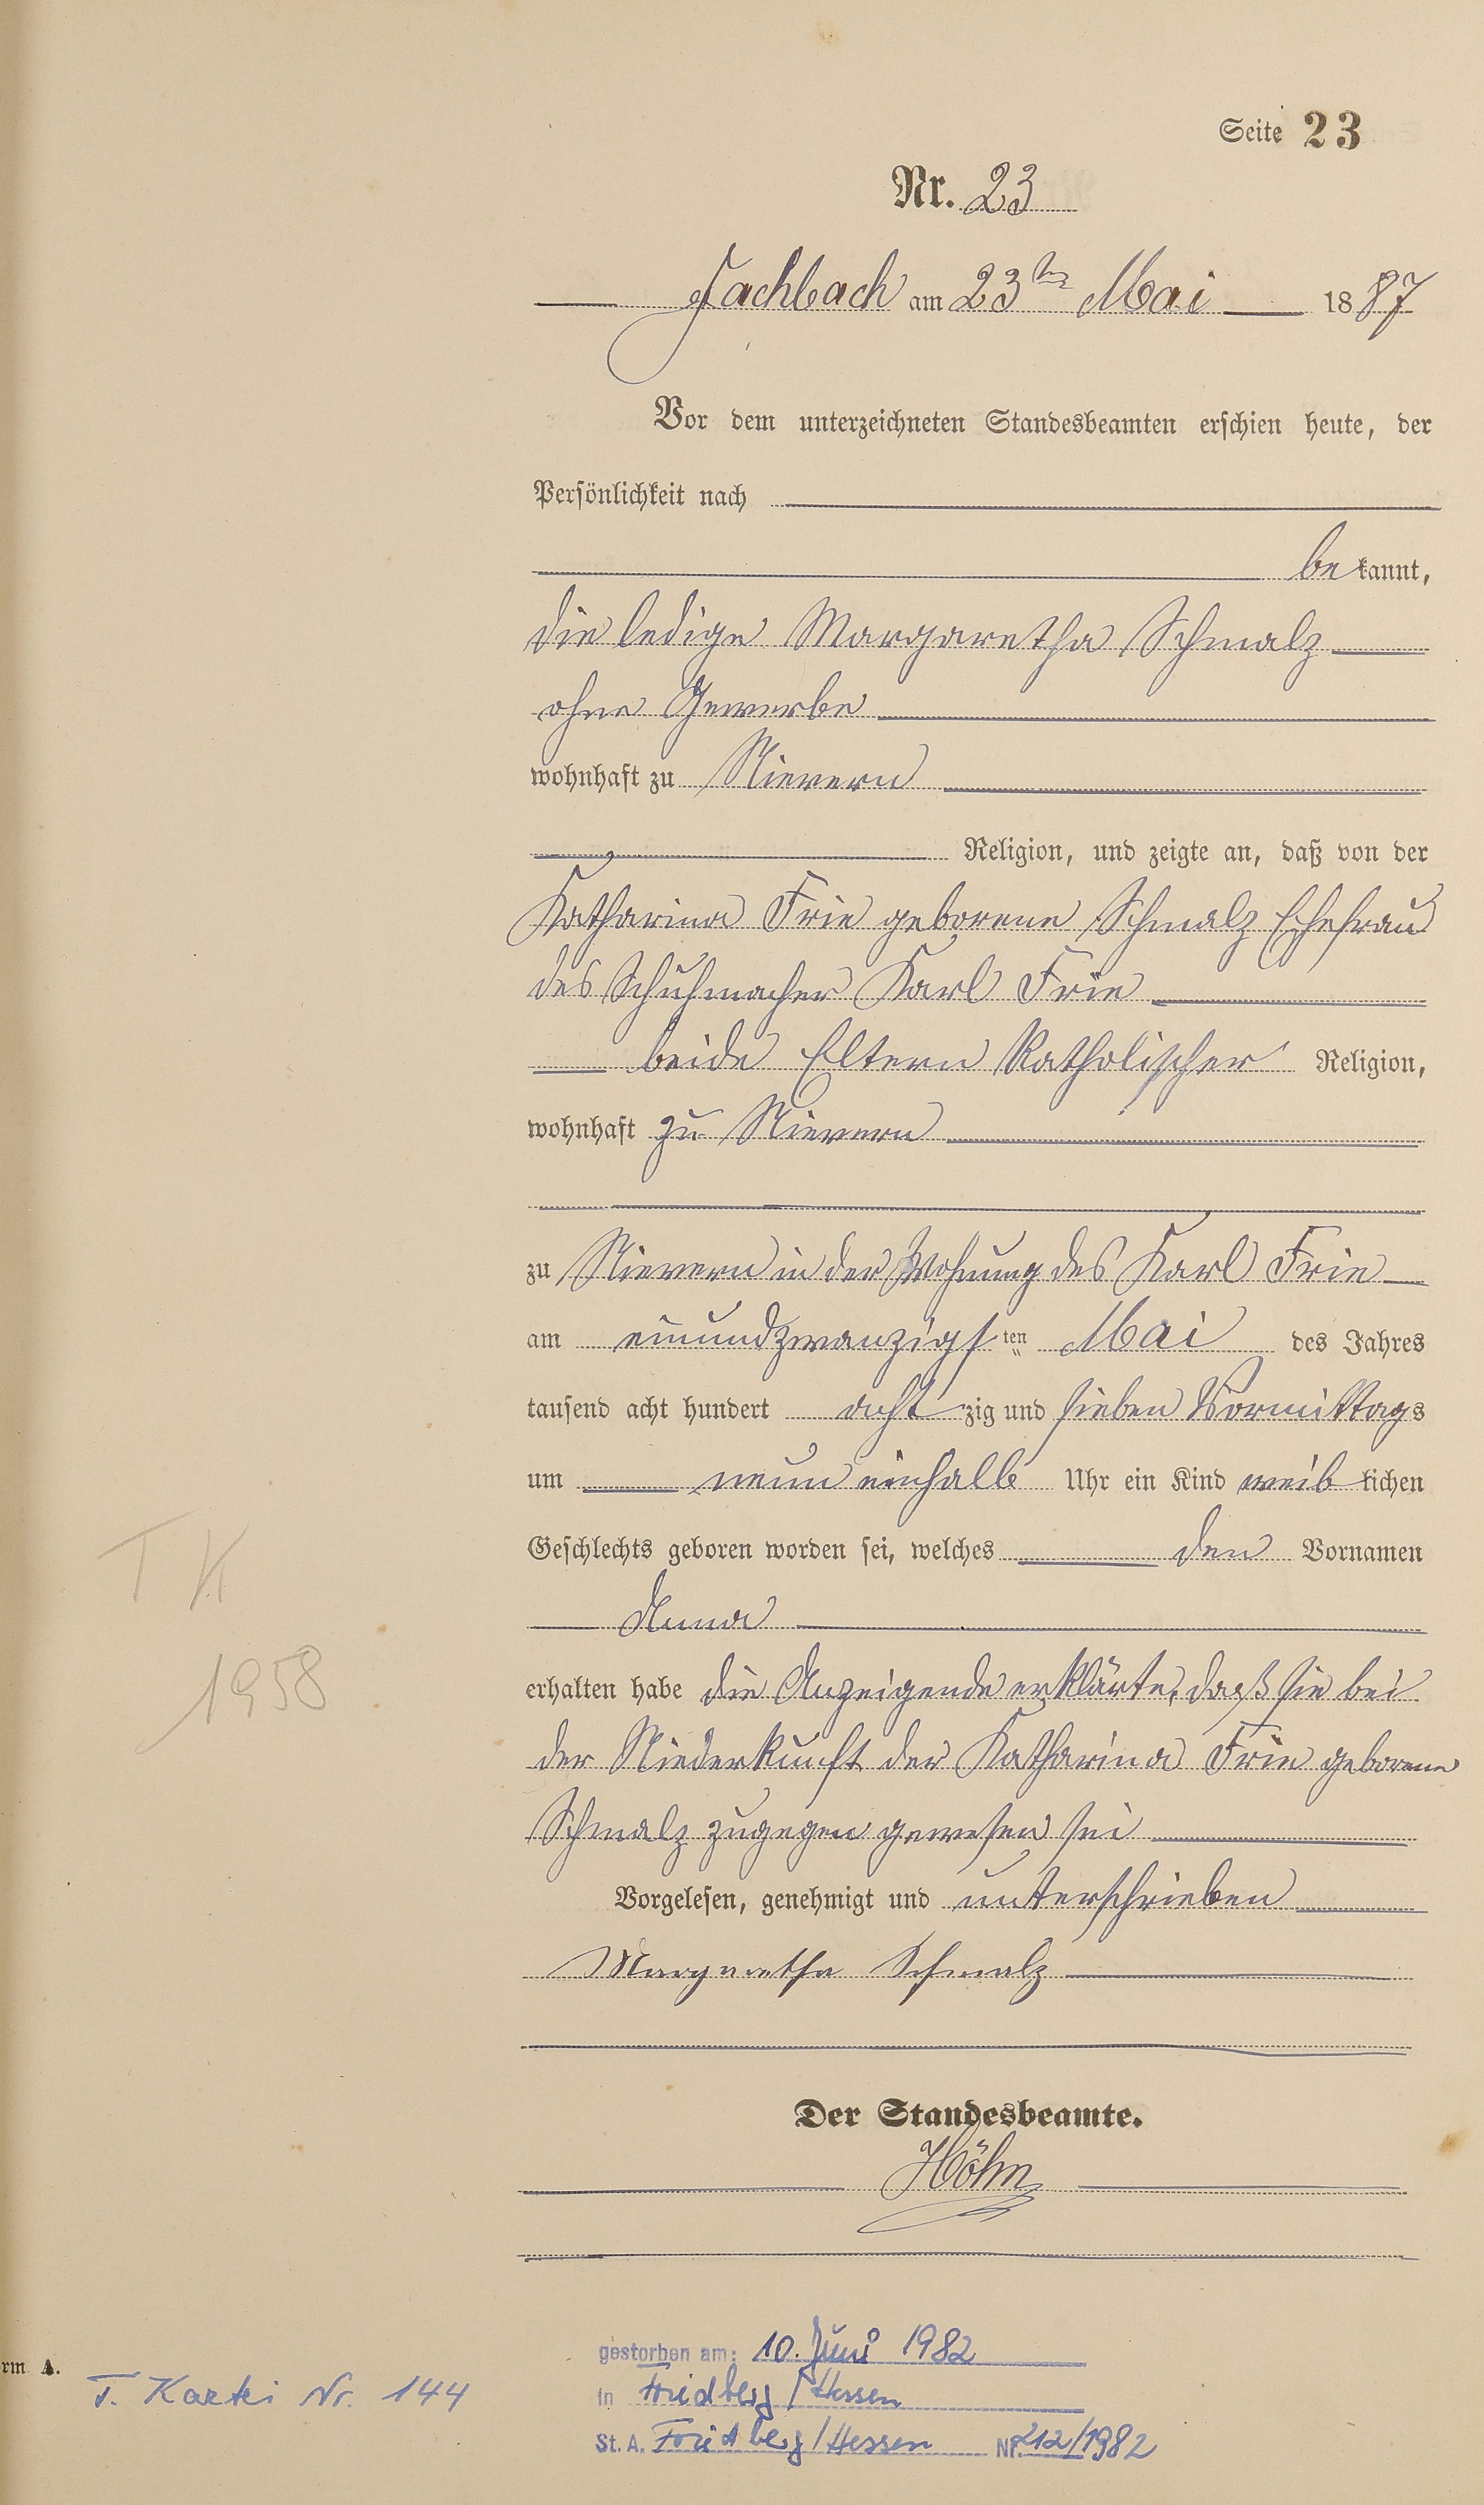 Seite 23
Nr. 23
Fachbach am 23ten Mai 1887
Vor dem unterzeichneten Standesbeamten erschien heute, der
Persönlichkeit nach
bekannt,
die ledige Margaretha Schmalz
ohne Gewerbe
wohnhaft zu Nievern
Religion, und zeigte an, daß von der
Katharina Frie geborene Schmalz Ehefrau
des Schuhmacher Karl Frie
beide Eltern Katholischer Religion,
wohnhaft zu Nievern
zu Nievern in der Wohnung des Karl Frie
am einundzwanzigsten Mai des Jahres
tausend acht hundert achtzig und sieben Vormittags
um neun einhalb Uhr ein Kind weiblichen
Geschlechts geboren worden sei, welches den Vornamen
Anna
T K
1958
erhalten habe die Anzeigende erklärte, daß sie bei
der Niederkunft der Katharina Frie geborene
Schmalz zugegen gewesen sei
Vorgelesen, genehmigt und unterschrieben
Margaretha Schmalz
Der Standesbeamte.
Höhn
gestorben am: 10. Juni 1982
in Friedberg / Hessen
St. A. Friedberg / Hessen Nr. 212/1982
rm A.
T. Kartei Nr. 144